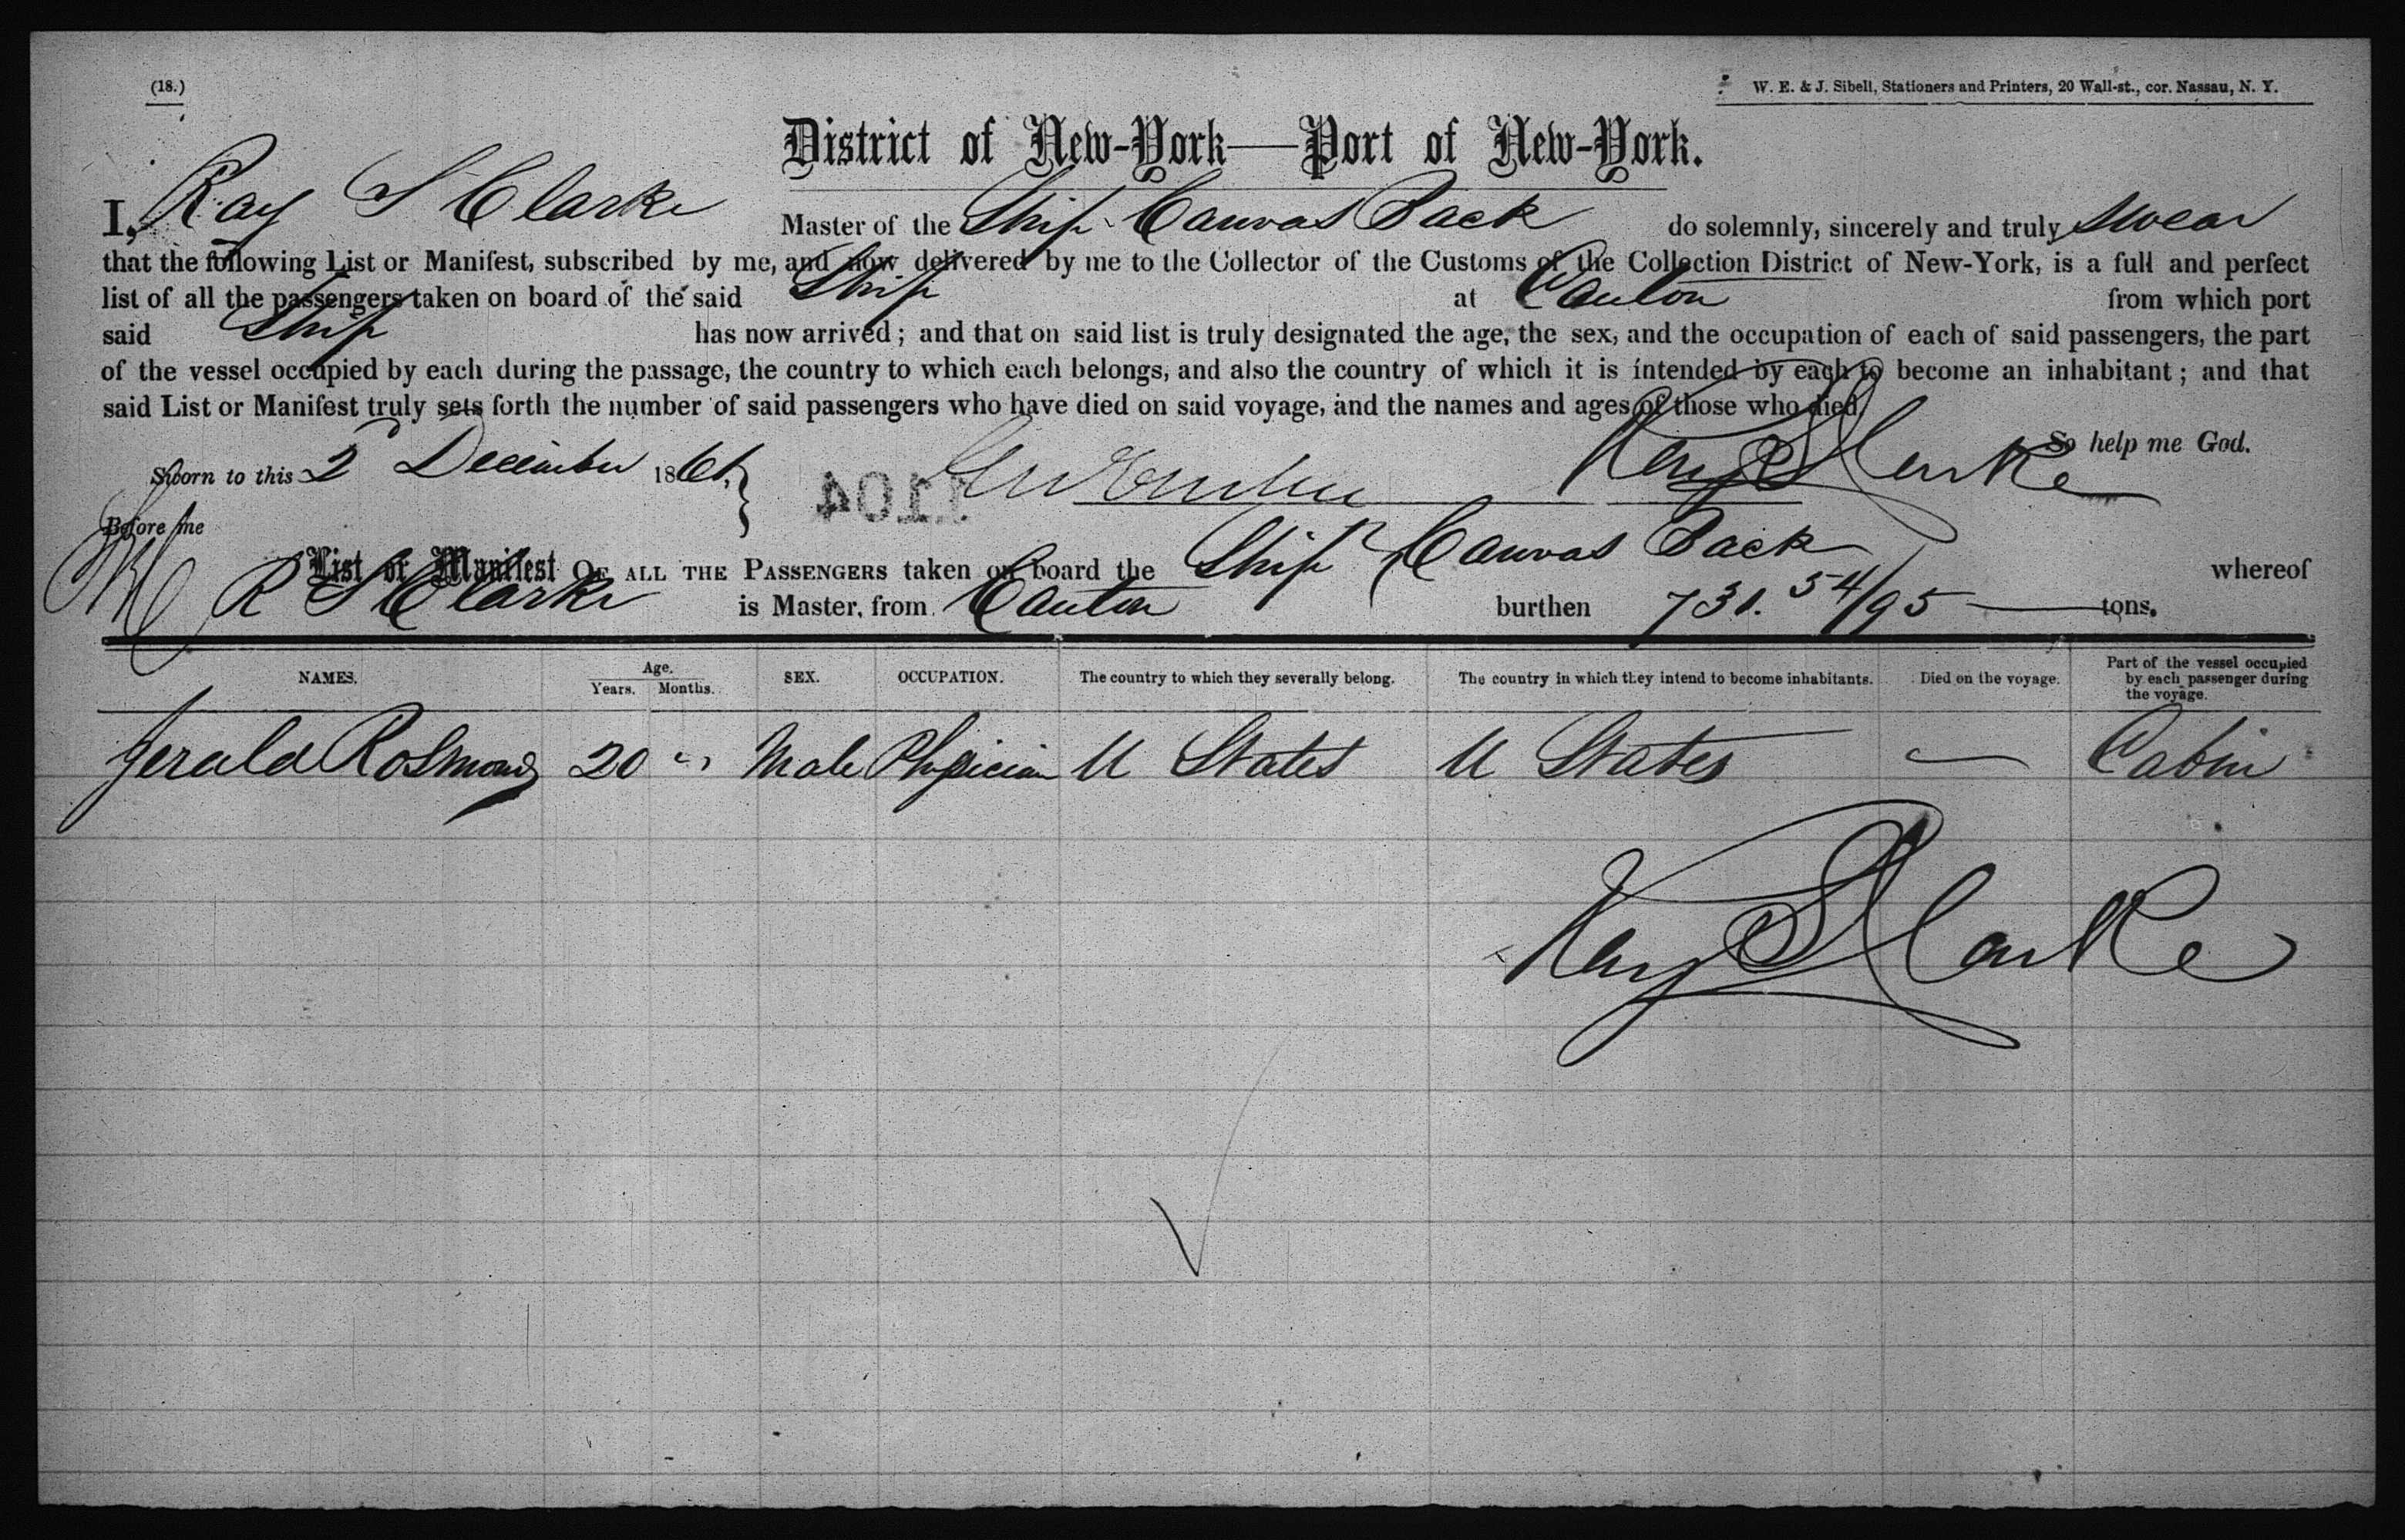 (18.)
W. E. & J. Sibell, Stationers and Printers, 20 Wall-st., cor. Nassau, N. Y.
District of New-York—Port of New-York.
I, Ray S Clarke Master of the Ship Canvas Back do solemnly, sincerely and truly swear
that the following List or Manifest, subscribed by me, and now delivered by me to the Collector of the Customs of the Collection District of New-York, is a full and perfect
list of all the passengers taken on board of the said Ship at Canton from which port
said Ship has now arrived; and that on said list is truly designated the age, the sex, and the occupation of each of said passengers, the part
of the vessel occupied by each during the passage, the country to which each belongs, and also the country of which it is intended by each to become an inhabitant; and that
said List or Manifest truly sets forth the number of said passengers who have died on said voyage, and the names and ages of those who died.
So help me God.
Sworn to this 2 December 1861, Ray S Clarke
1104
Before me
List or Manifest OF ALL THE PASSENGERS taken on board the Ship Canvas Back whereof
R S Clarke is Master, from Canton burthen 731. 54/95 tons.
NAMES. Age. Years. Months. SEX. OCCUPATION. The country to which they severally belong. The country in which they intend to become inhabitants. Died on the voyage. Part of the vessel occupied by each passenger during the voyage.
Jerald 20 " Male Physician U States U States — Cabin
Ray S Clarke